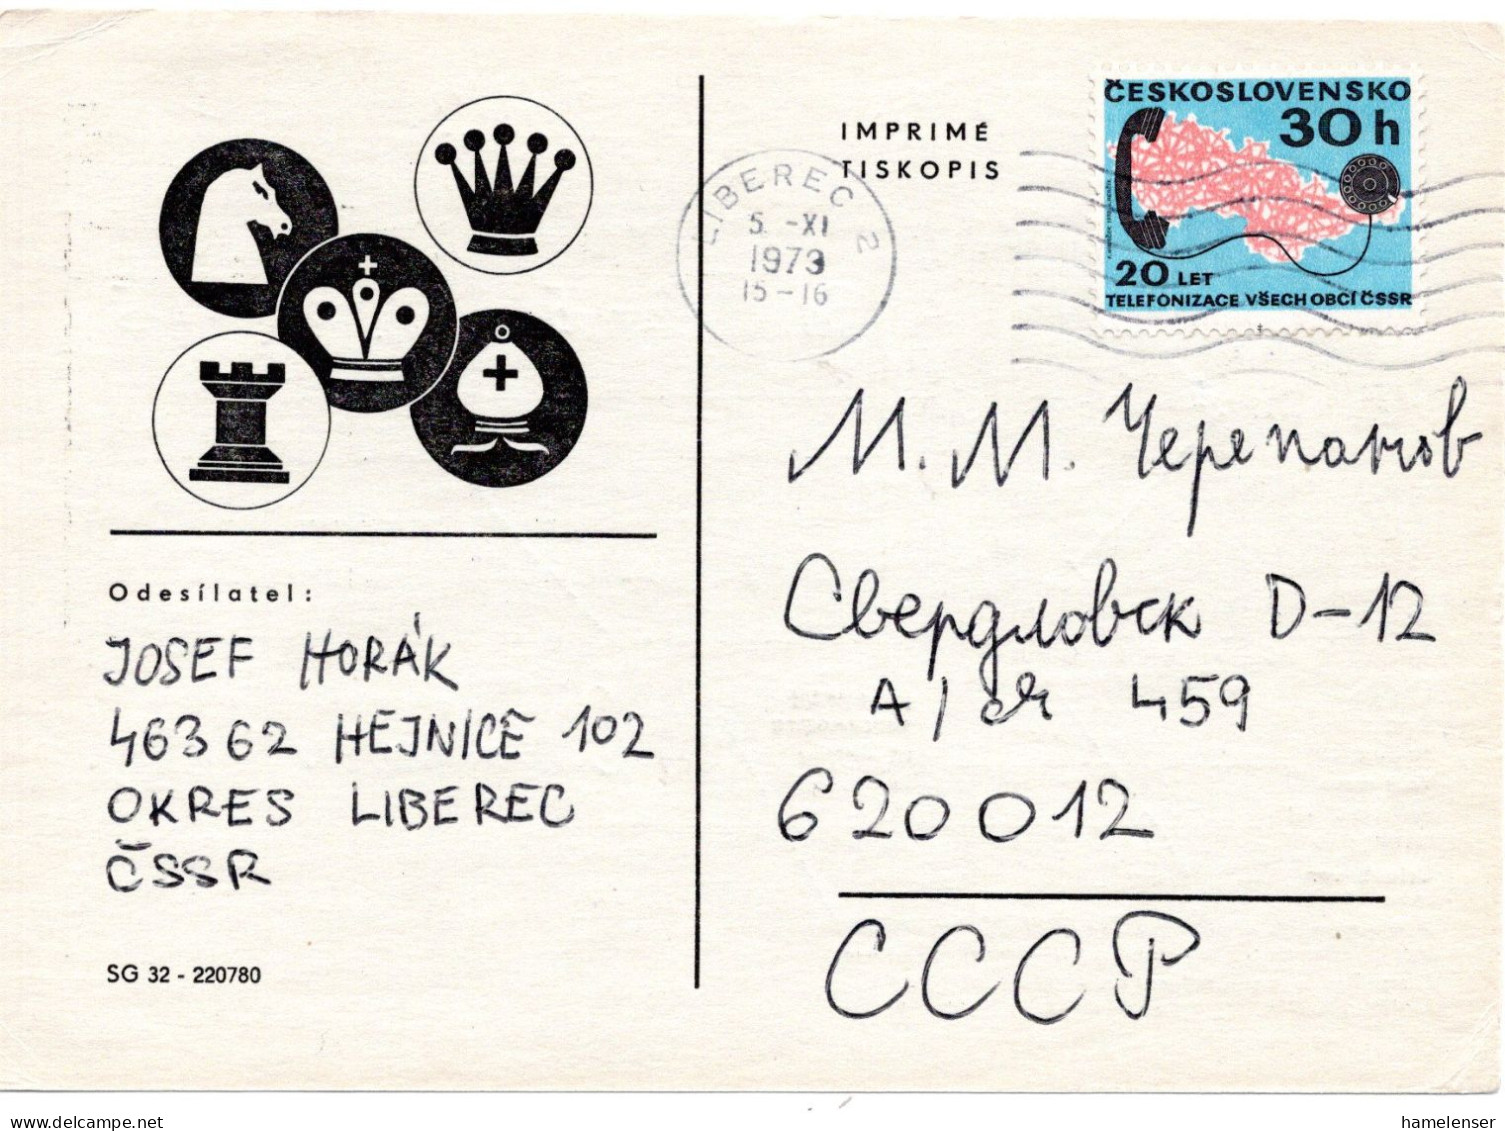 IMPRIMÉ
TISKOPIS
ČESKOSLOVENSKO
30h
20 LET
TELEFONIZACE VŠECH OBCÍ ČSSR
LIBEREC 2
5.-XI
1973
15-16
М. М. Черепанов
Свердловск D-12
А/я 459
620012
СССР
Odesílatel:
JOSEF HORÁK
463 62 HEJNICE 102
OKRES LIBEREC
ČSSR
SG 32 - 220780
hamelenser